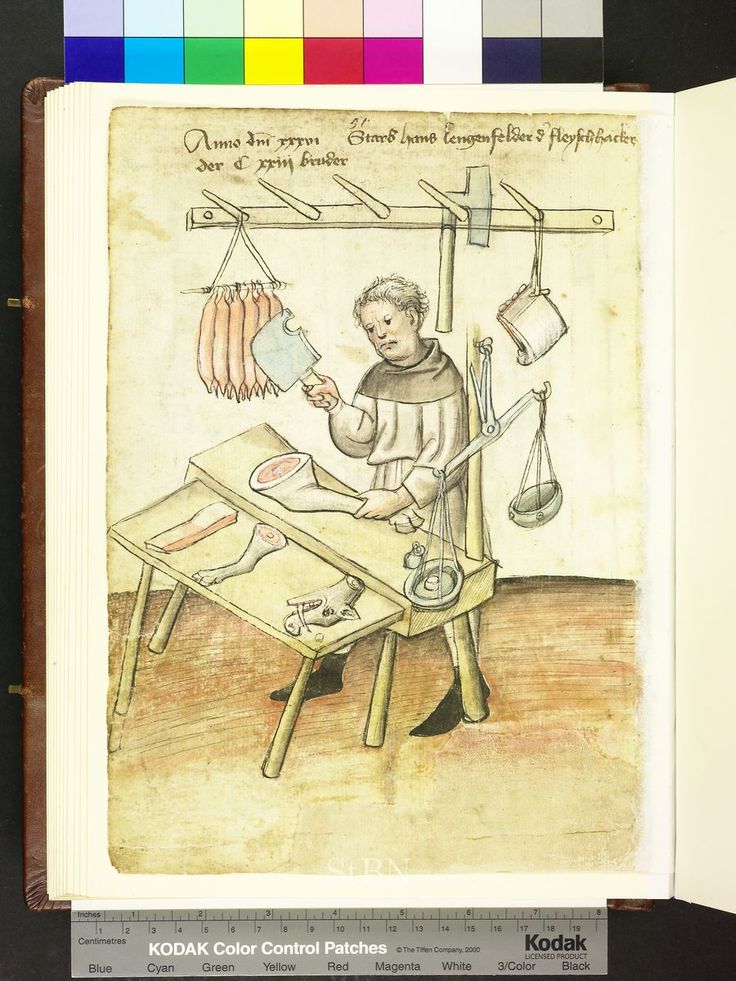 51
Anno dm xxxvi Starb hans lengenfelder d fleyschhacker
der C xxiii bruder
StBN
Inches 1 2 3 4 5 6 7 8
Centimetres 1 2 3 4 5 6 7 8 9 10 11 12 13 14 15 16 17 18 19
KODAK Color Control Patches © The Tiffen Company, 2000 Kodak
LICENSED PRODUCT
Blue Cyan Green Yellow Red Magenta White 3/Color Black